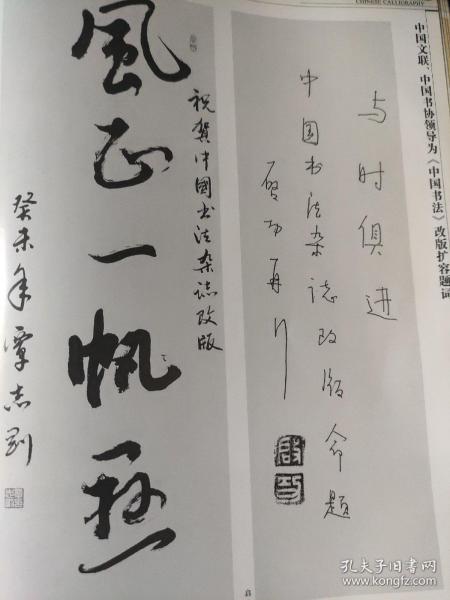 CHINESE CALLIGRAPHY
中国文联、中国书协领导为《中国书法》改版扩容题词
与时俱进
中国书法杂誌改版命题
启功再行
祝贺中國书法杂誌改版
風正一帆悬
癸未年谭志刚
孔夫子旧书网
www.kongfz.com